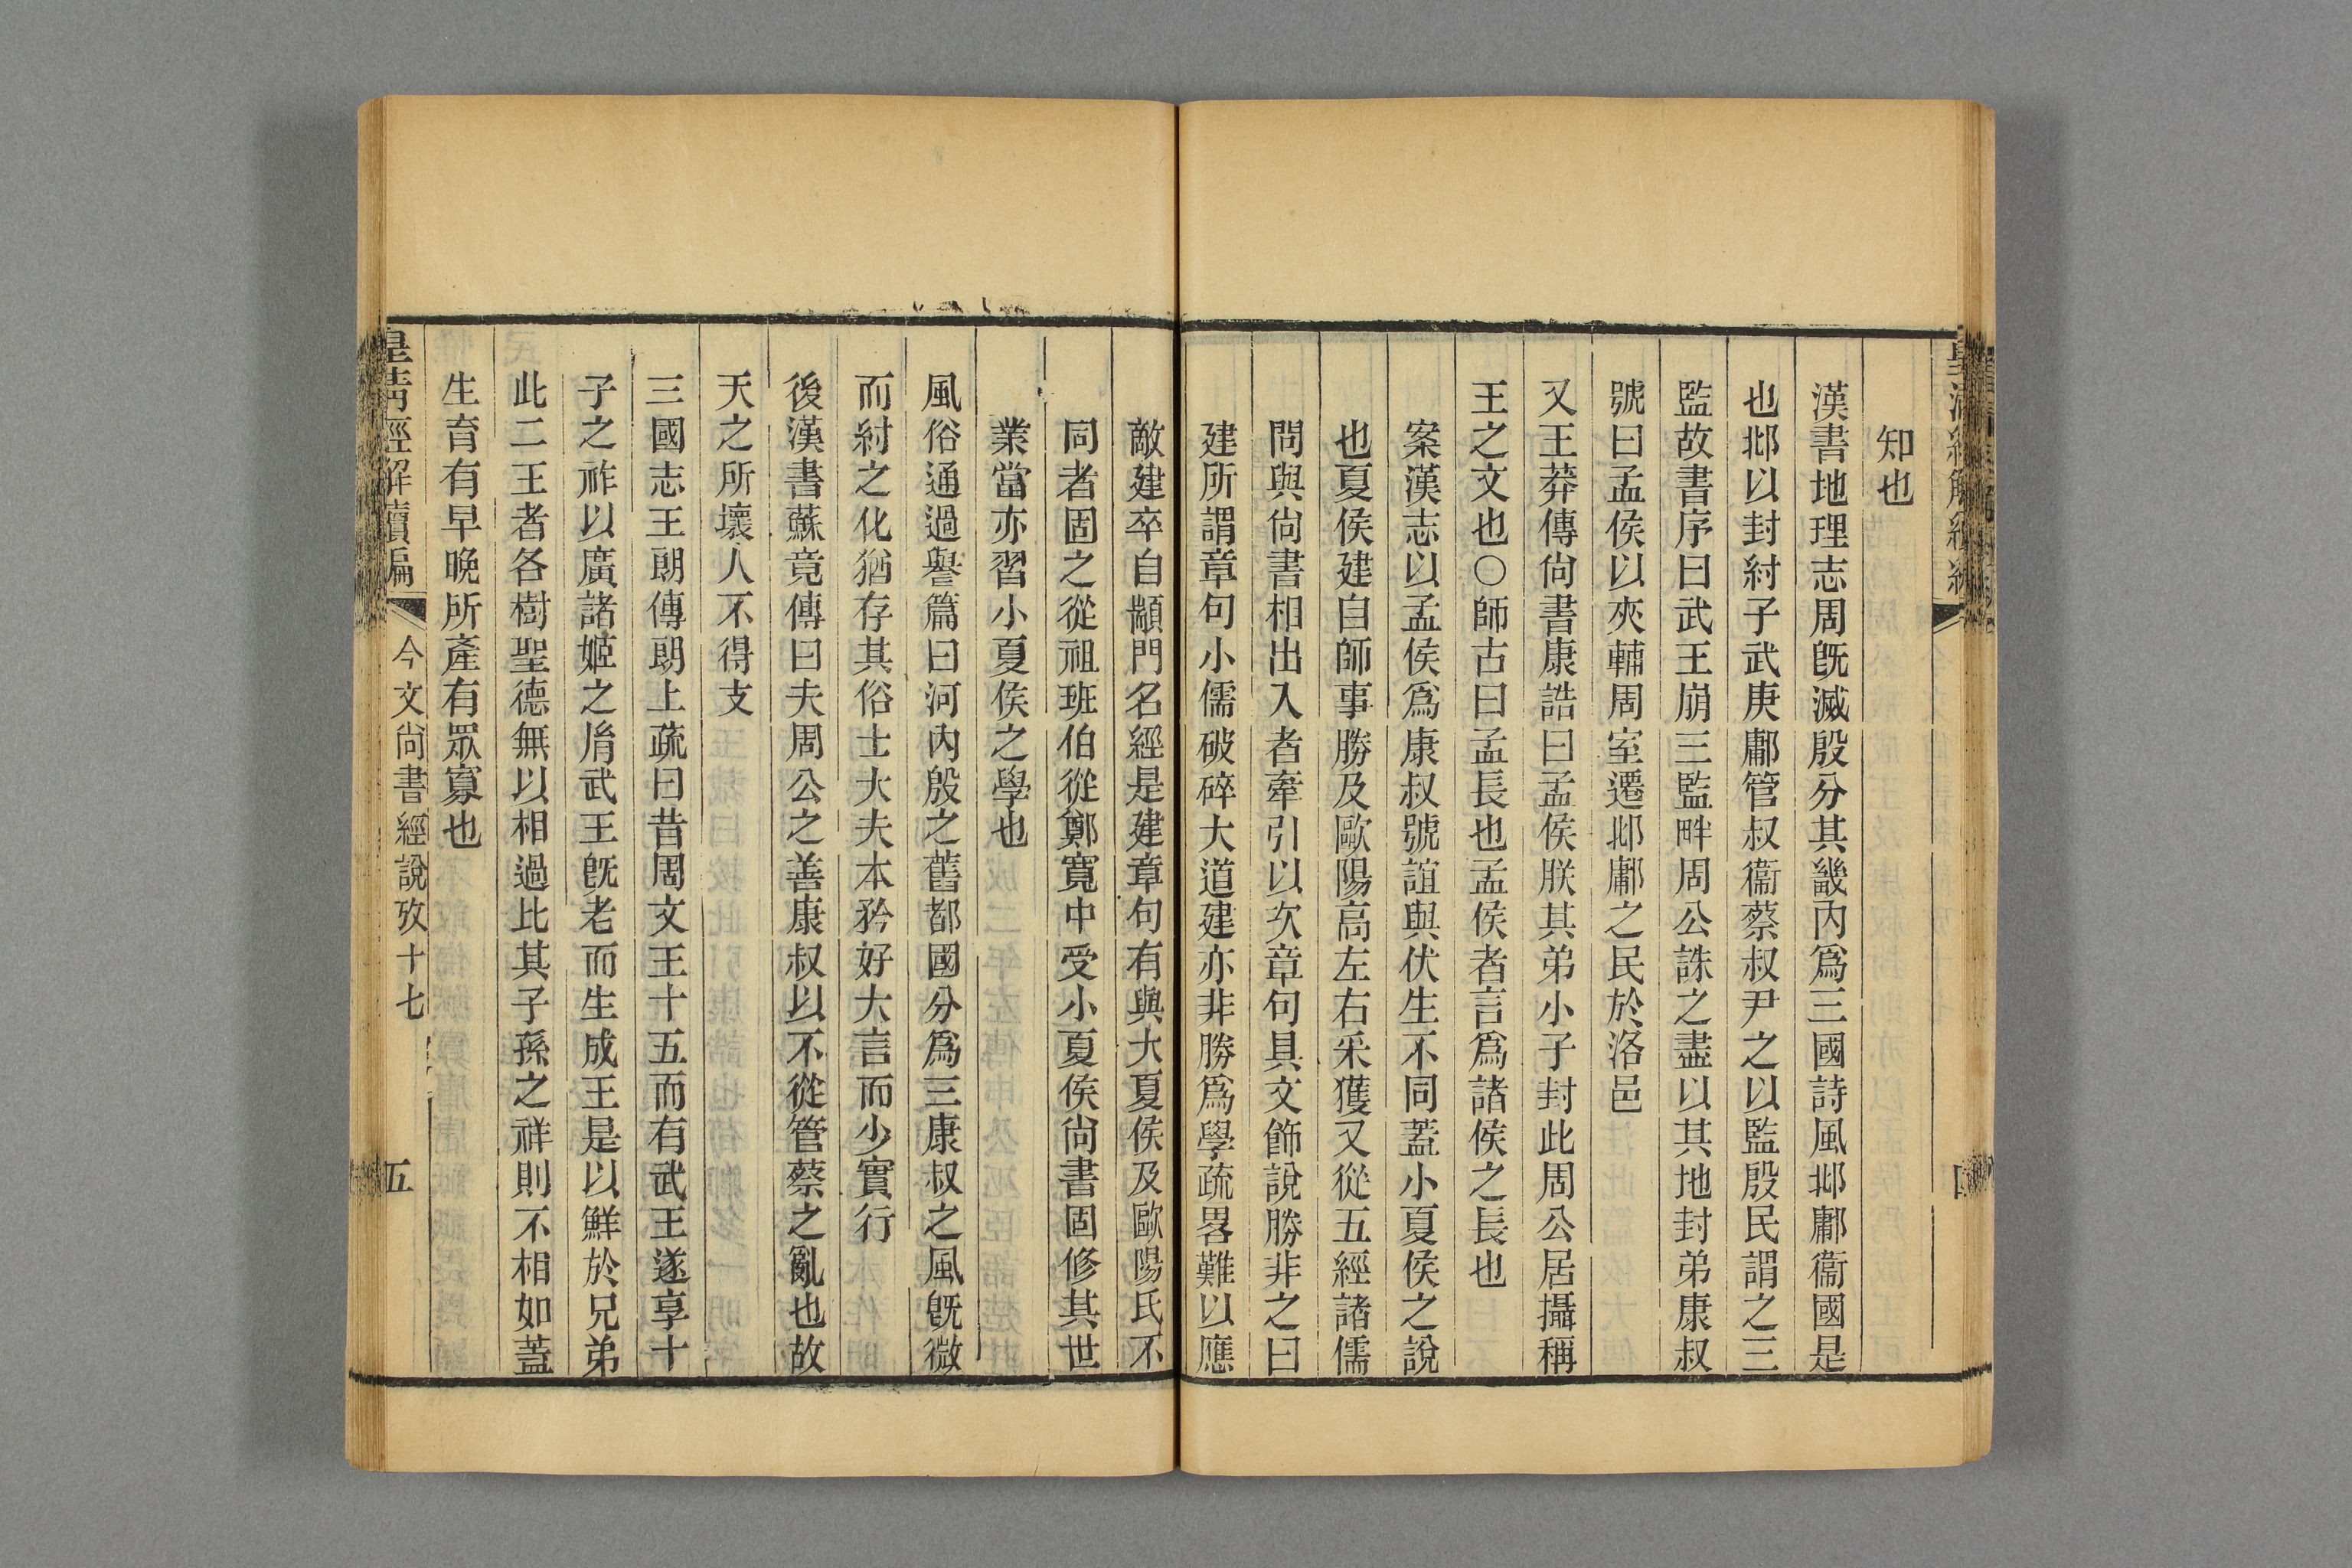 知也
漢書地理志周旣滅殷分其畿內爲三國詩風邶鄘衞國是
也邶以封紂子武庚鄘管叔衞蔡叔尹之以監殷民謂之三
監故書序曰武王崩三監畔周公誅之盡以其地封弟康叔
號曰孟侯以夾輔周室遷邶鄘之民於洛邑
又王莽傳尙書康誥曰孟侯朕其弟小子封此周公居攝稱
王之文也○師古曰孟長也孟侯者言爲諸侯之長也
案漢志以孟侯爲康叔號誼與伏生不同蓋小夏侯之說
也夏侯建自師事勝及歐陽高左右采獲又從五經諸儒
問與尙書相出入者牽引以次章句具文飾說勝非之曰
建所謂章句小儒破碎大道建亦非勝爲學疏畧難以應
敵建卒自顓門名經是建章句有與大夏侯及歐陽氏不
同者固之從祖班伯從鄭寬中受小夏侯尙書固修其世
業當亦習小夏侯之學也
風俗通過譽篇曰河內殷之舊都國分爲三康叔之風旣微
而紂之化猶存其俗士大夫本矜好大言而少實行
後漢書蘇竟傳曰夫周公之善康叔以不從管蔡之亂也故
天之所壞人不得支
三國志王朗傳朗上疏曰昔周文王十五而有武王遂享十
子之祚以廣諸姬之胤武王旣老而生成王是以鮮於兄弟
此二王者各樹聖德無以相過比其子孫之祥則不相如蓋
生育有早晚所產有眾寡也
皇清經解續編
今文尙書經說攷十七
五